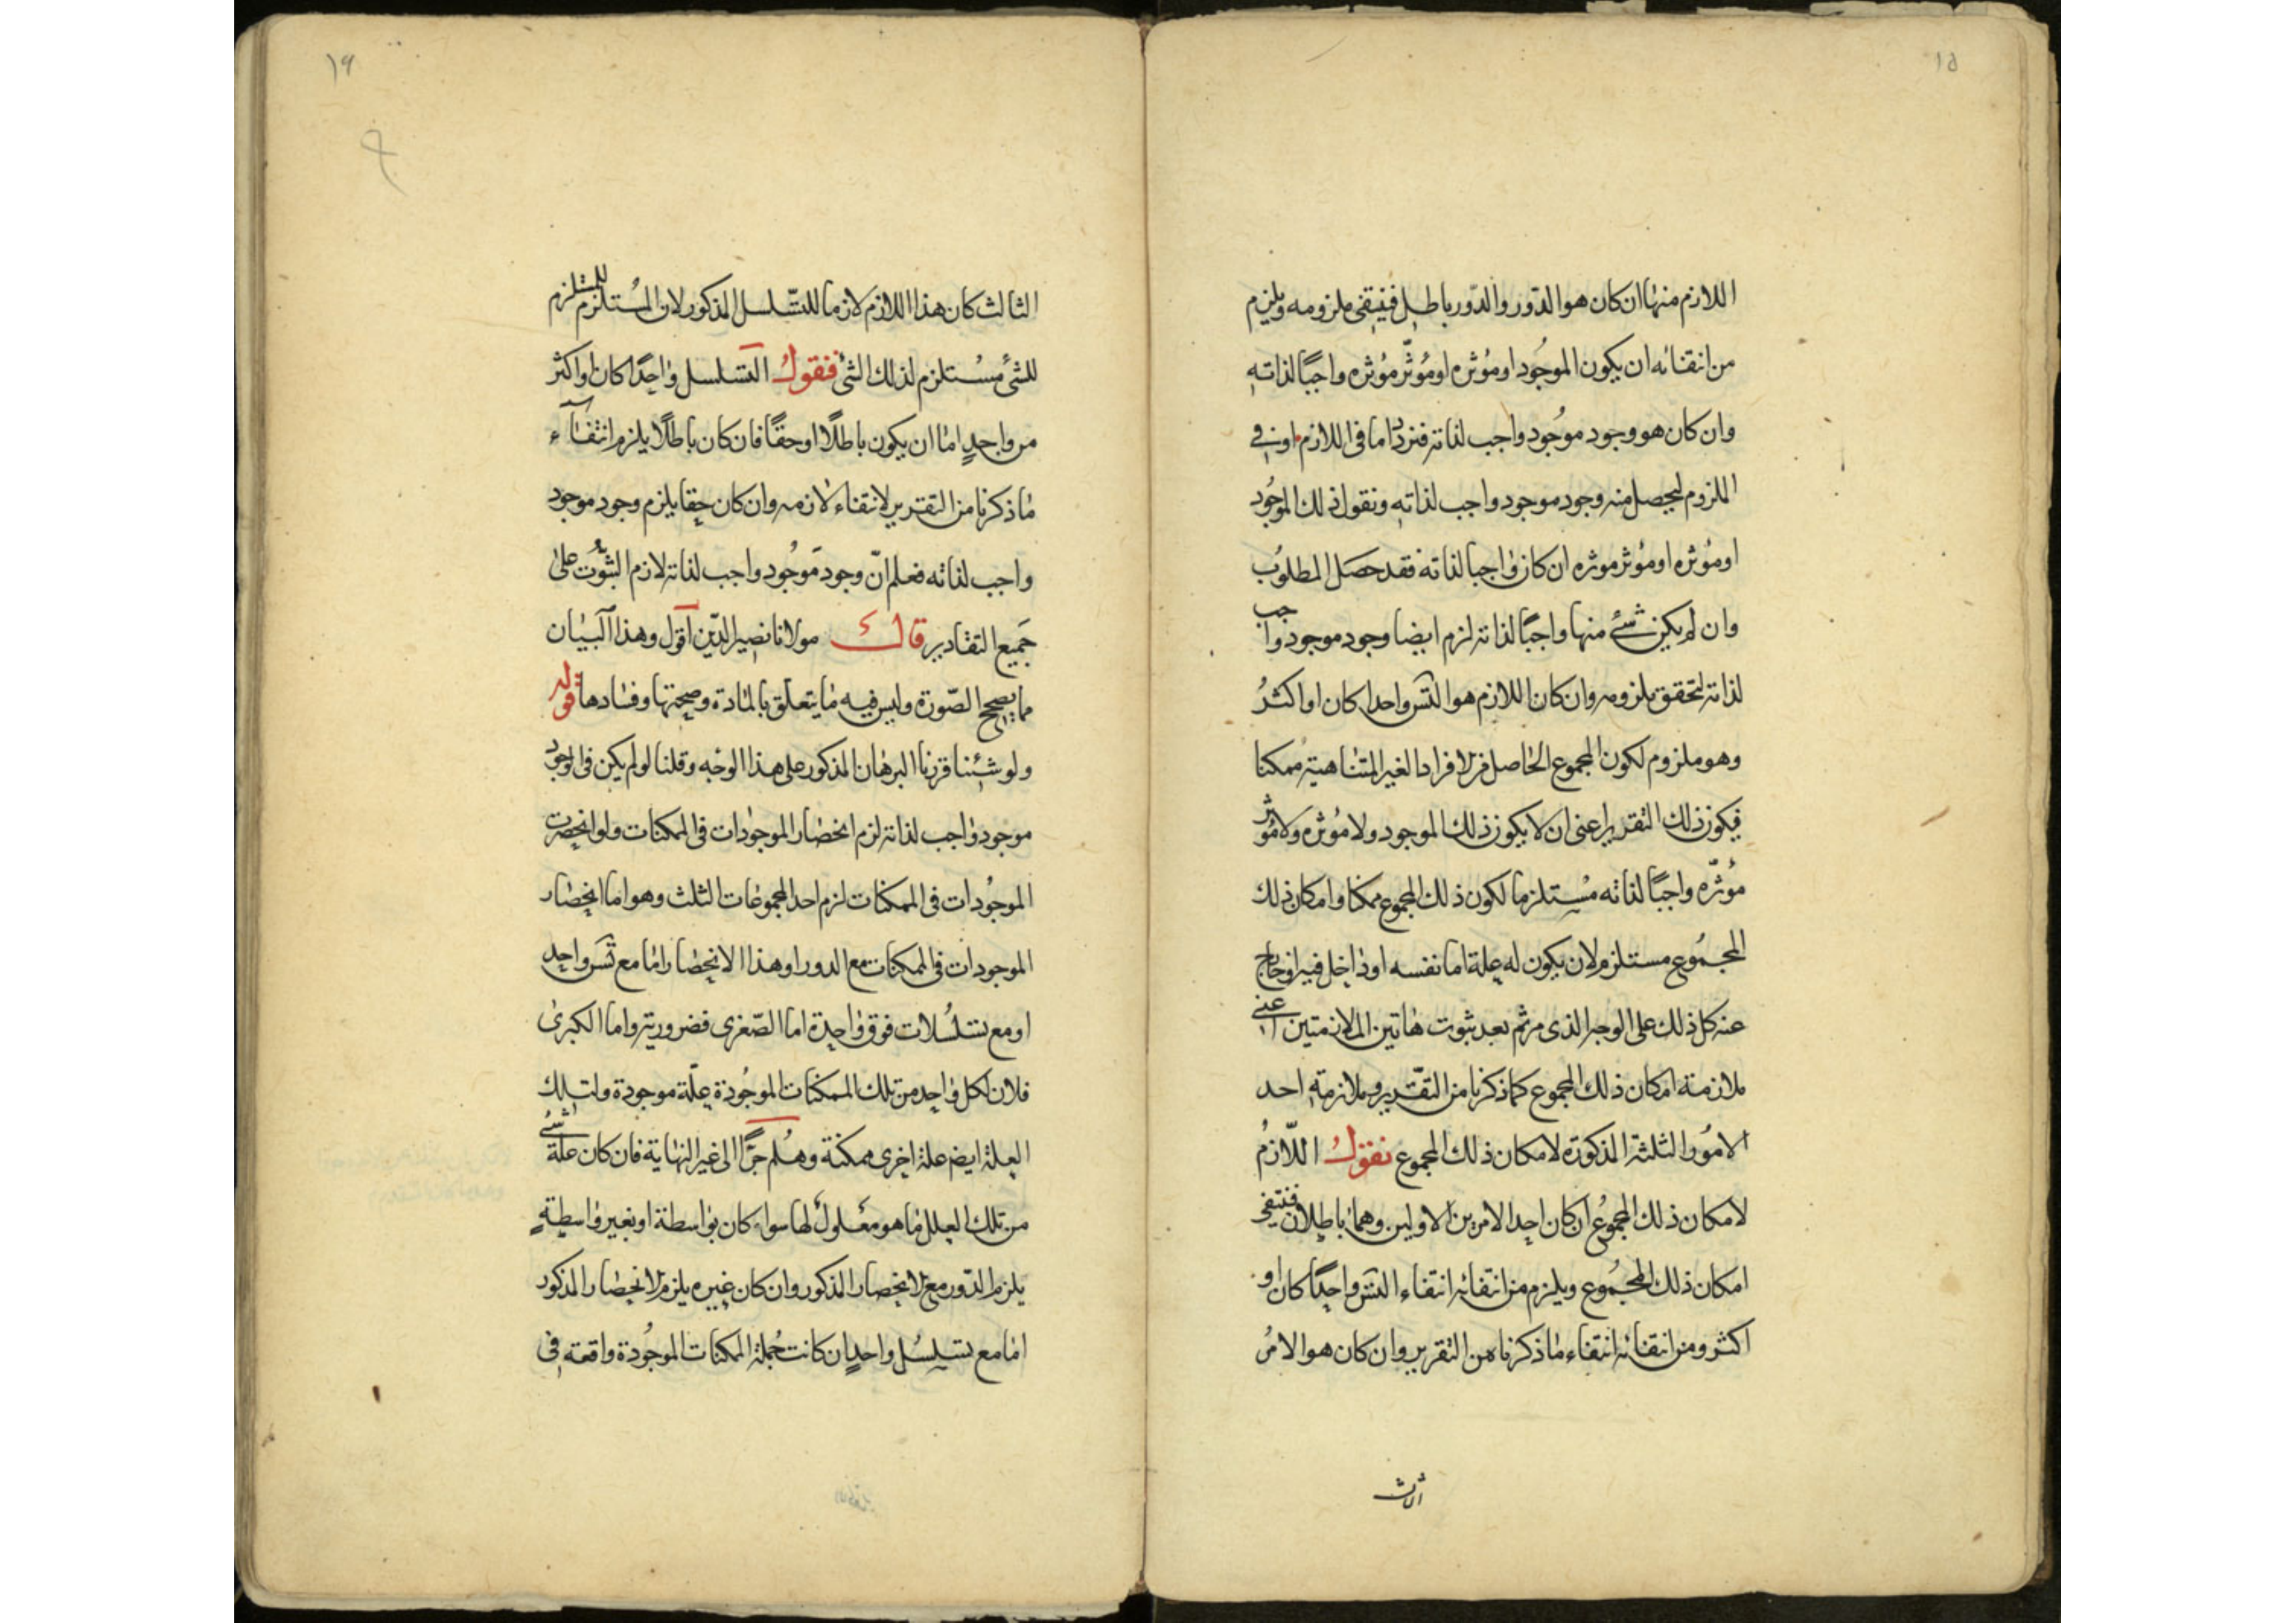 ١٥
اللازم منها ان كان هو الدّور والدّور باطل فينتفى ملزومه ويلزم
من انتفائه ان يكون الموجُود او مُوثره او مُوثّر مُوثره واجبًا لذاته
وان كان هو وجود موجُود واجب لذاته فنردّد اما فى اللازم او فى
الملزوم ليحصل منه وجود موجود واجب لذاته ونقول ذلك الموجُود
او مُوثره او مُوثر موثره ان كان واجبا لذاته فقد حصَل المطلوُب
وان لم يكن شئ منها واجبًا لذاته لزم ايضا وجود موجود واجب
لذاته لتحقق ملزومه وان كان اللازم هو التس واحدا كان او اكثرُ
وهو ملزوم لكون المجموع الحاصل من الافراد الغير المتناهية ممكنا
فيكون ذلك التقدير اعنى ان لا يكون ذلك الموجود ولا مُوثره ولا مُوثر
مُوثّره واجبًا لذاته مُستلزما لكون ذلك المجموع ممكنا وامكان ذلك
المجمُوع مستلزم لان يكون له علة اما نفسه او داخل فيه او خارج
عنه كل ذلك على الوجه الذى مر ثم بعد ثبوت هاتين الملازمتين اعنى
ملازمة امكان ذلك المجموع كما ذكرنا من التقدير وملازمة احد
الامُور الثلثة المذكورة لامكان ذلك المجموع نقولُ اللّازمُ
لامكان ذلك المجموُع ان كان احد الامرين الاولين وهما باطلان فينتفى
امكان ذلك المجمُوع ويلزم من انتفائه انتفاء التس واحدًا كان او
اكثر ومن انتفائه انتفاء ما ذكرناه من التقدير وان كان هو الامرُ
الثالث
١٦
الثالث كان هذا اللازم لازما للتسلسل المذكور لان المُستلزم للمستلزم
للشئ مُستلزم لذلك الشئ فنقولُ التسلسل واحدًا كان او اكثر
من واحدٍ اما ان يكون باطلًا او حقًا فان كان باطلًا يلزم انتفآء
ما ذكرنا من التقدير لانتفاء لازمه وان كان حقا يلزم وجود موجود
واجب لذاته فعلم انّ وجود مَوجُود واجب لذاته لازم الثبُوت على
جَميع التقادير قال مولانا نصير الدّين اقول وهذا البيان
مما يصحح الصّورة وليس فيه ما يتعلق بالمادة وصحتها وفسادها قوله
ولو شئنا قررنا البرهان المذكور على هذا الوجه وقلنا لو لم يكن فى الوجود
موجود واجب لذاته لزم انحصار الموجودات فى الممكنات ولو انحصرت
الموجُودات فى الممكنات لزم احد المجموعات الثلث وهو اما انحصار
الموجودات فى الممكنات مع الدور او هذا الانحصار اما مع تس واحد
او مع تسلسُلات فوق واحدة اما الصّغرى فضرورية واما الكبرى
فلان لكل واحد من تلك الممكنات الموجُودة علّة موجودة ولتلك
العلة ايضا علة اخرى ممكنة وهُلم جرًّا الى غير النهاية فان كان علة شئ
من تلك العلل ما هو معلولُ لها سواء كان بواسطة او بغير واسطةٍ
يلزم الدّور مع الانحصار المذكور وان كان غيره يلزم الانحصار المذكور
اما مع تسلسُل واحدٍ ان كانت جُملة الممكنات الموجُودة واقعة فى